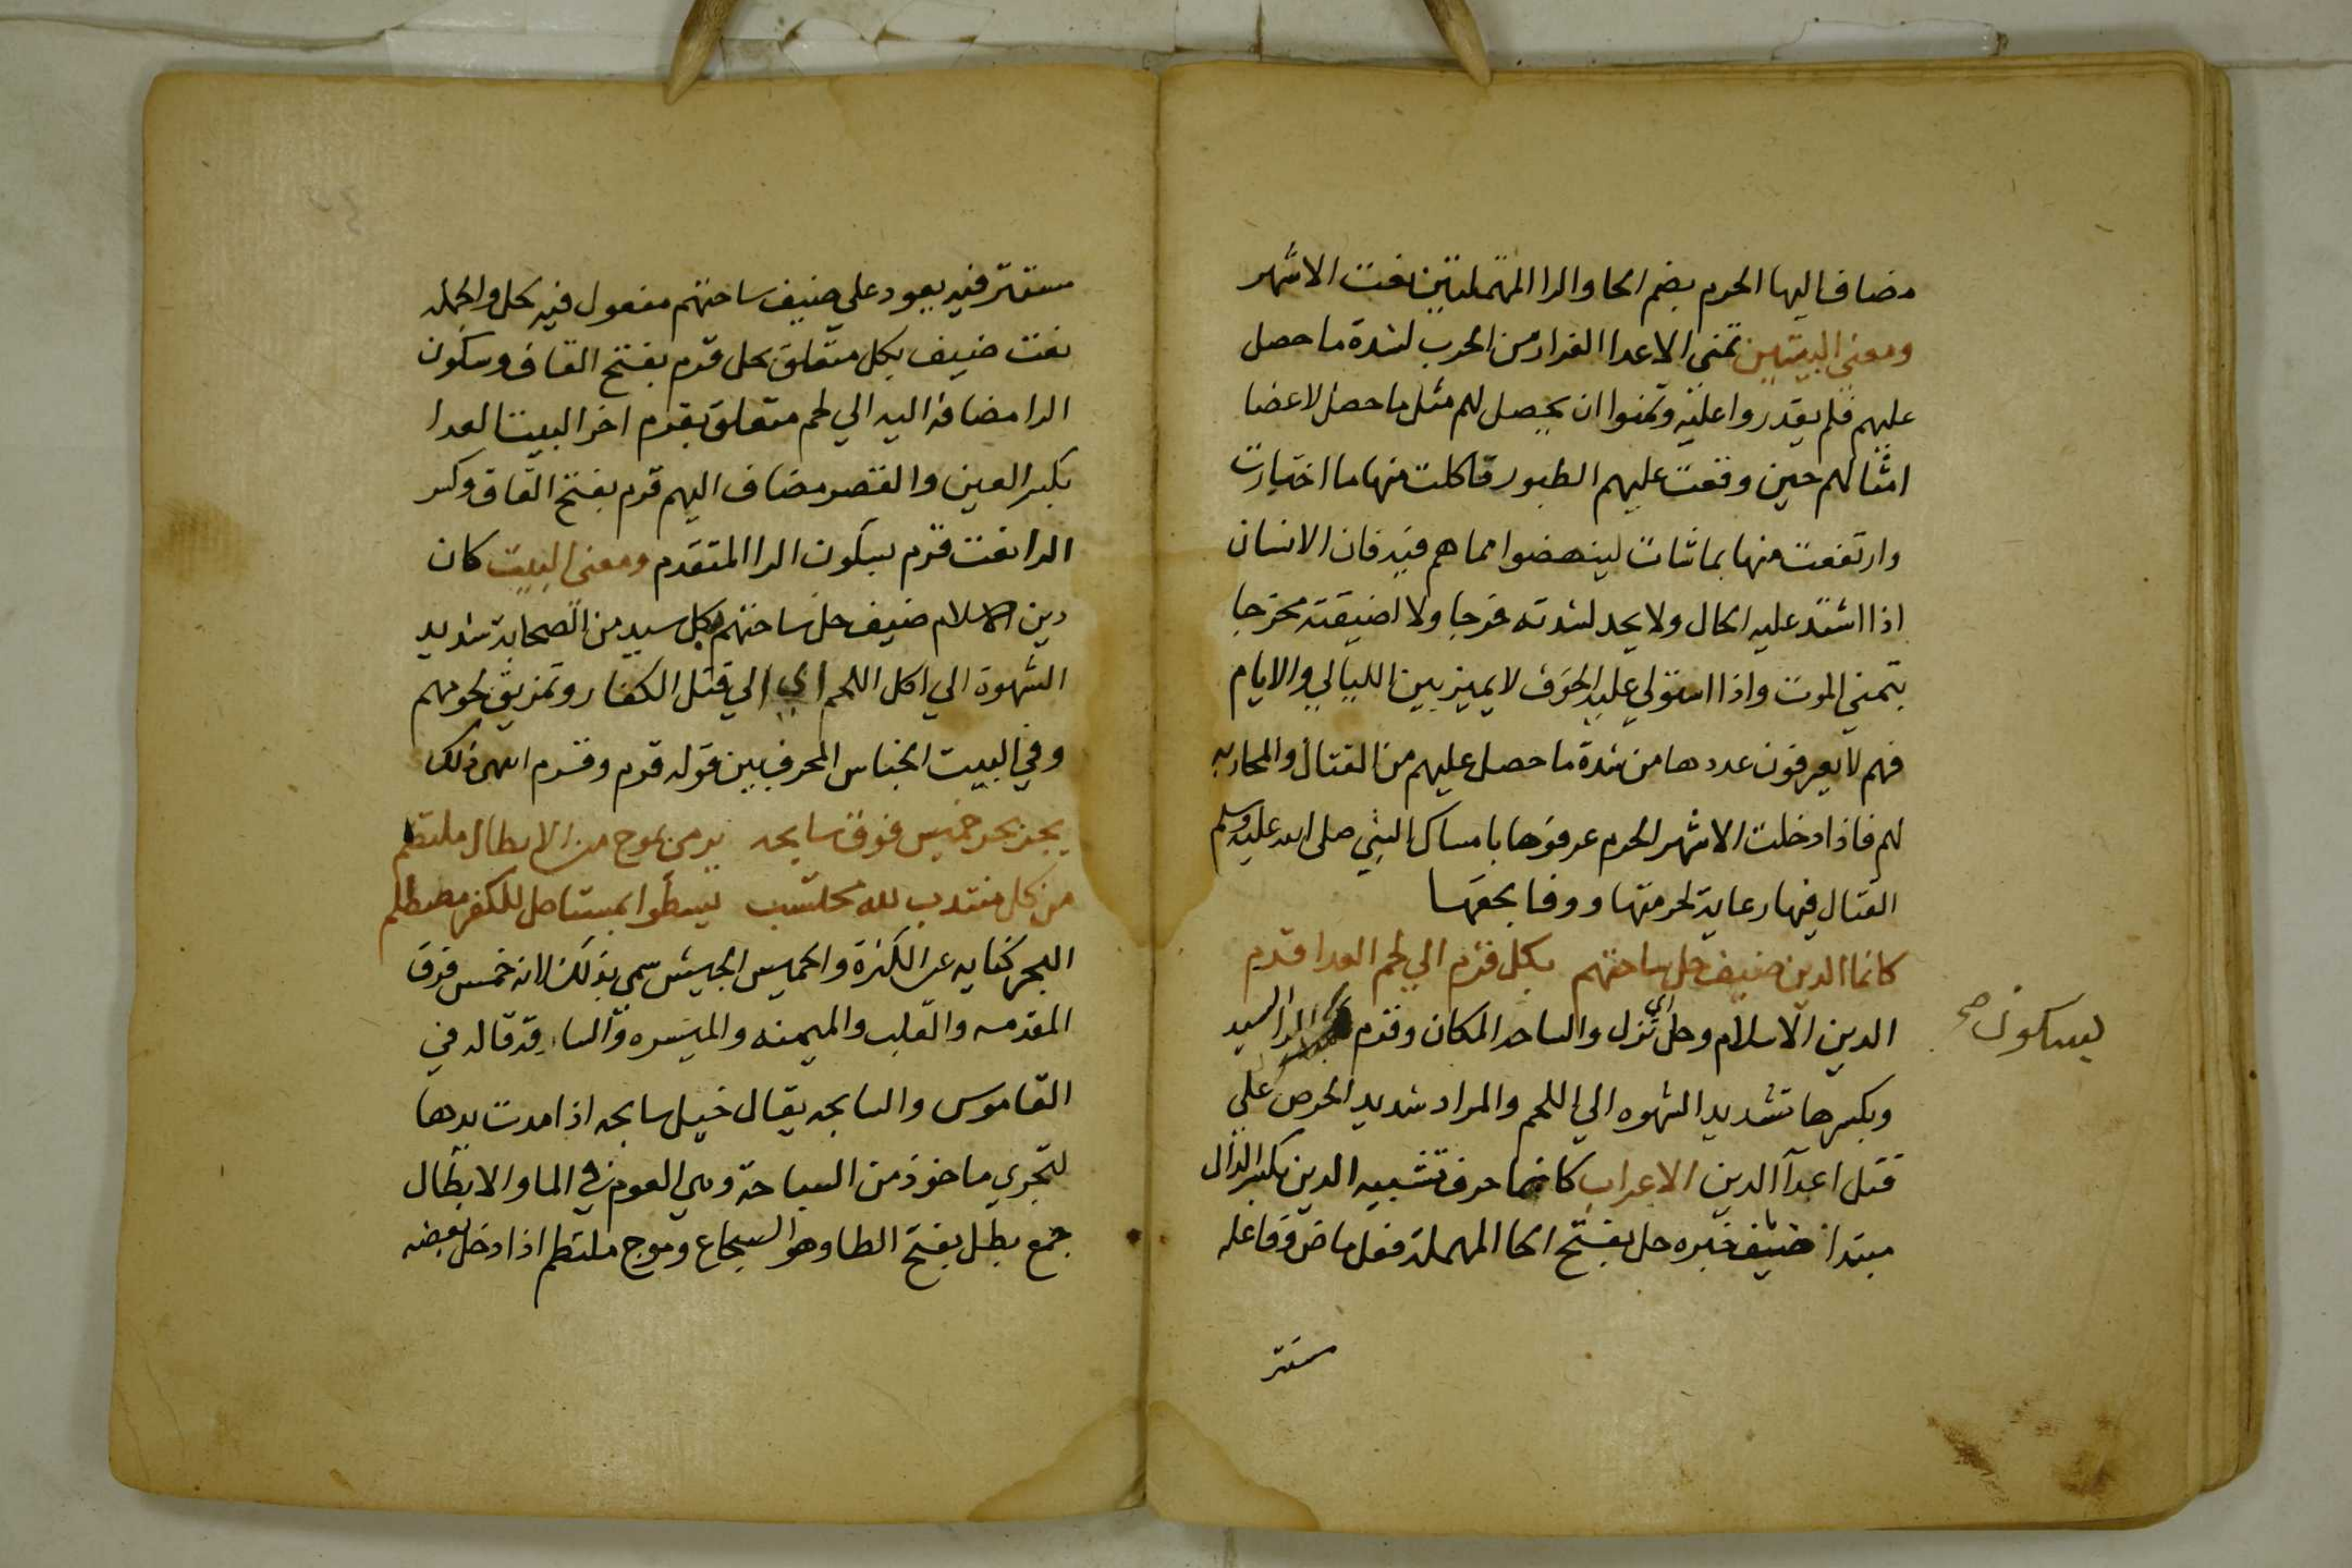 مضاف اليها الحرم بضم الحا والرا المهملتين نعت الاشهر
ومعنى البيتين تمنى الاعدا الفرار من الحرب لشدة ما حصل
عليهم فلم يقدروا عليه وتمنوا ان يحصل لهم مثل ما حصل لاعضا
امثالهم حين وقعت عليهم الطيور فاكلت منها ما اختارت
وارتفعت منها بما شات لينهضوا مما هم فيه فان الانسان
اذا اشتد عليه الحال ولا يجد لشدته فرجا ولا لضيقته مخرجا
يتمني الموت واذا استولي عليه الخوف لا يميز بين الليالي والايام
فهم لا يعرفون عددها من شدة ما حصل عليهم من القتال والمحاربه
لهم فاذا دخلت الاشهر الحرم عرفوها بامساك النبي صلى الله عليه وسلم
القتال فيها رعاية لحرمتها ووفا بحقها
كانما الدين ضيف حل ساحتهم بكل قرم الي لحم العدا قرم
الدين الاسلام وحل اي نزل والساحه المكان وقرم الرا السيد
بسكون صح
وبكسرها شديد الشهوه الي اللحم والمراد شديد الحرص علي
قتل اعدآ الدين الاعراب كانما حرف تشبيه الدين بكسر الدال
مبتدا ضيف خبره حل بفتح الحا المهملة فعل ماض وفاعله
مستتر
مستتر فيه يعود علي ضيف ساحتهم مفعول فيه بحل والجمله
نعت ضيف بكل متعلق بحل قرم بفتح القاف وسكون
الرا مضافة اليه الي لحم متعلق بقرم اخر البيت العدا
بكسر العين والقصر مضاف اليهم قرم بفتح القاف وكسر
الرا نعت قرم بسكون الرا المتقدم ومعنى البيت كان
دين الاسلام ضيف حل ساحتهم بكل سيد من الصحابة شديد
الشهوة الي اكل اللحم اي الي قتل الكفار وتمزيق لحومهم
وفي البيت الجناس المحرف بين قوله قرم وقرم ذلك
يجر بحر خميس فوق سابحه يرمي بموج من الابطال ملتطم
من كل منتدب لله محتسب يسطوا بمستاصل للكفر مصطلم
البحر كنايه عن الكثرة والخميس الجيش سمي بذلك لانه خمس فرق
المقدمه والقلب والميمنه والميسره والساقه قاله في
القاموس والسابحه يقال خيل سابحه اذا مدت يدها
لتجري ماخوذ من السباحة وهي العوم في الما والابطال
جمع بطل بفتح الطا وهو الشجاع وموج ملتطم اذا دخل بعضه